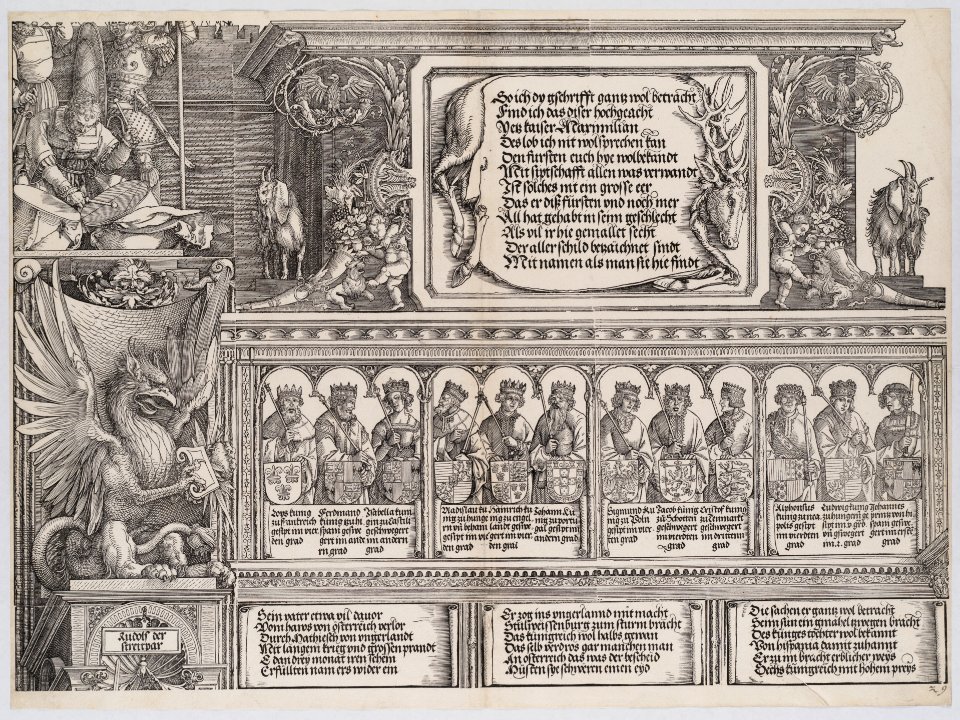 So ich dy gschrifft gantz wol betracht
Find ich das diser hochgeacht
Vetz kaiser Maximilian
Des lob ich nit wolsprechen kan
Den fürsten euch hye wolbekandt
Mit siptschafft allen was verwandt
Ist solches nit ein grosse eer
Das er diß fürsten vnd noch mer
All hat gehabt in seim geschlecht
Als vil ir hie gemallet secht
Der aller schild bezaichnet sindt
Mit namen als man sie hie findt
Loys kunig
zu franckreich
gesipt im vier
den grad
Ferdinand
kunig zu hi
spani geswe
gert im andern
grad
Isabella kun
gin zu Castili
gesipt im
andern
grad
Vladislau ku
nig zu hunge
vn beham
gesipt im vier
den grad
Hainrich ku
nig zu engel
landt geswe
gert im vier
den grad
Johann ku
nig zu portu
gal gesipt im
andern grad
Sigmund Ku
nig zu Poln
gesipt im vier
den grad
Jacob kunig
zu Schotten
geschwegert
im vierden
grad
Cristof kunig
zu Denmarkt
geschwegert
im dritten
grad
Alphonsus
kunig zu nea
polis gesipt
im vierden
grad
Ludwig kunig
zu hungern ge
sipt im
vn gswegert
im 2. grad
Johannes
prinz von hi
spani geswe
gert im erste
grad
Rudolf der
streitpar
Sein vater etwa vil davor
Vom haws von osterreich verlor
Durch Mathiesch von vngerlandt
Mit langem krieg vnd grossen prandt
E dan drey monat
Erfullten nam ers wider ein
Er zog ins vngerlannd mit macht
Stulweyssenburg zum sturm bracht
Das kunigreich wol halbs gewan
Das selb verdros gar manchen man
An osterreich das was der bescheid
Musten sye schweren einen eyd
Die sachen er gantz wol betracht
Seim sun ein gmahel zwegen bracht
Des kunges tochter wol bekannt
Von hispania damit zuhannt
Er zu im bracht erblicher weys
Sechs kunigreich mit hohem preys